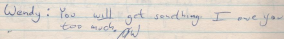 Wendy: You will get something I owe you
too much. AW